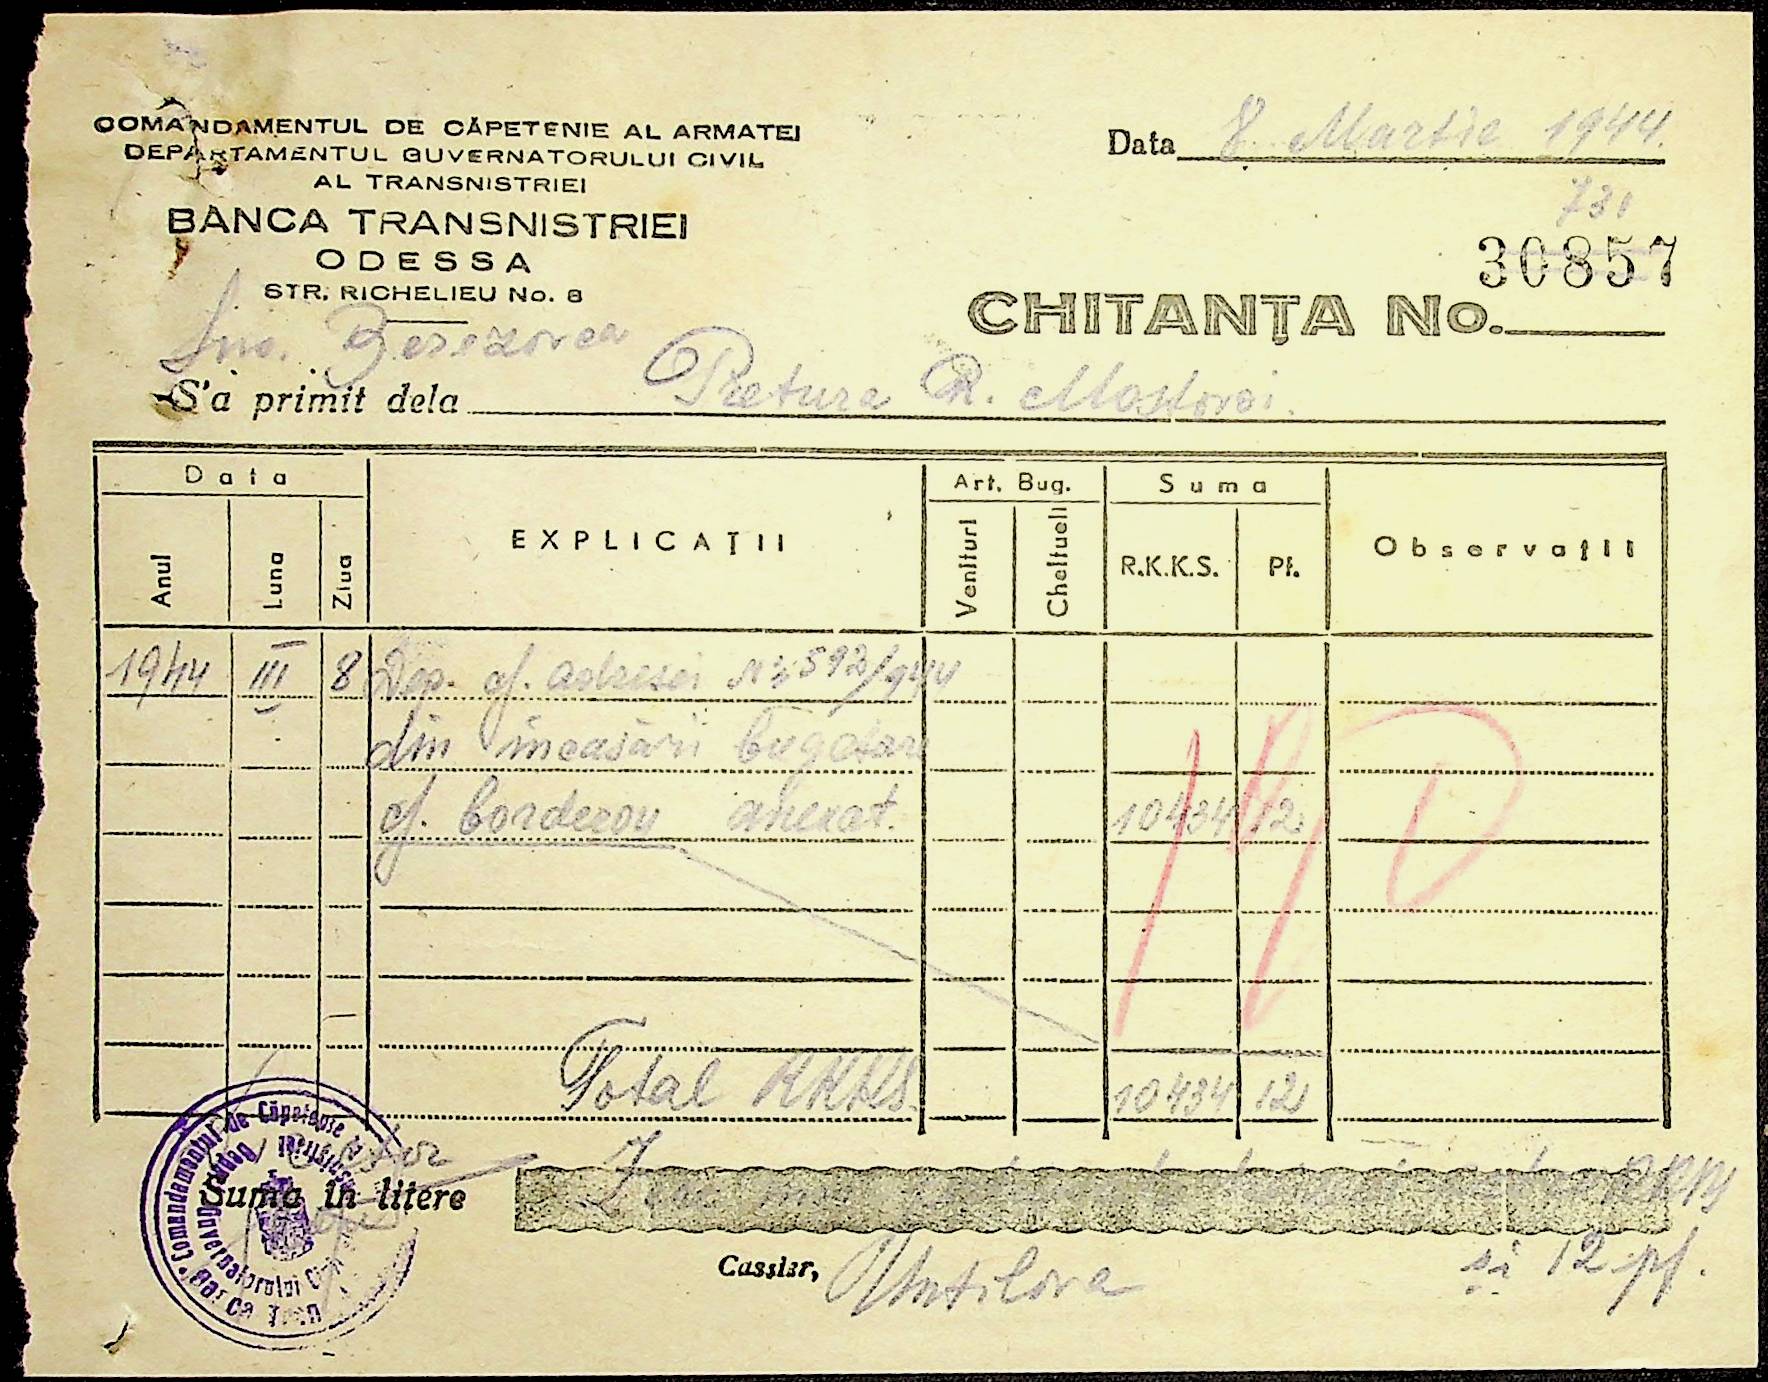 COMANDAMENTUL DE CĂPETENIE AL ARMATEI
DEPARTAMENTUL GUVERNATORULUI CIVIL
AL TRANSNISTRIEI
BANCA TRANSNISTRIEI
ODESSA
STR. RICHELIEU No. 8
Data 8 Martie 1944.
731
30857
CHITANȚA No.
Berezovca
S'a primit dela Pretura R. Mostovoi.
Data
Art. Bug.
Suma
Anul
Luna
Ziua
EXPLICAȚII
Venituri
Cheltueli
R.K.K.S.
Pf.
Observații
1944 III 8 Dep. cf. adresei No 592/944
din încasări bugetare
cf. borderou anexat. 10434 12
Total RKKS. 10434 12
Suma în litere Zece mii RKKS
și 12 pf.
Cassier,
Comandamentul de Căpetenie al
Guvernatorului Civil